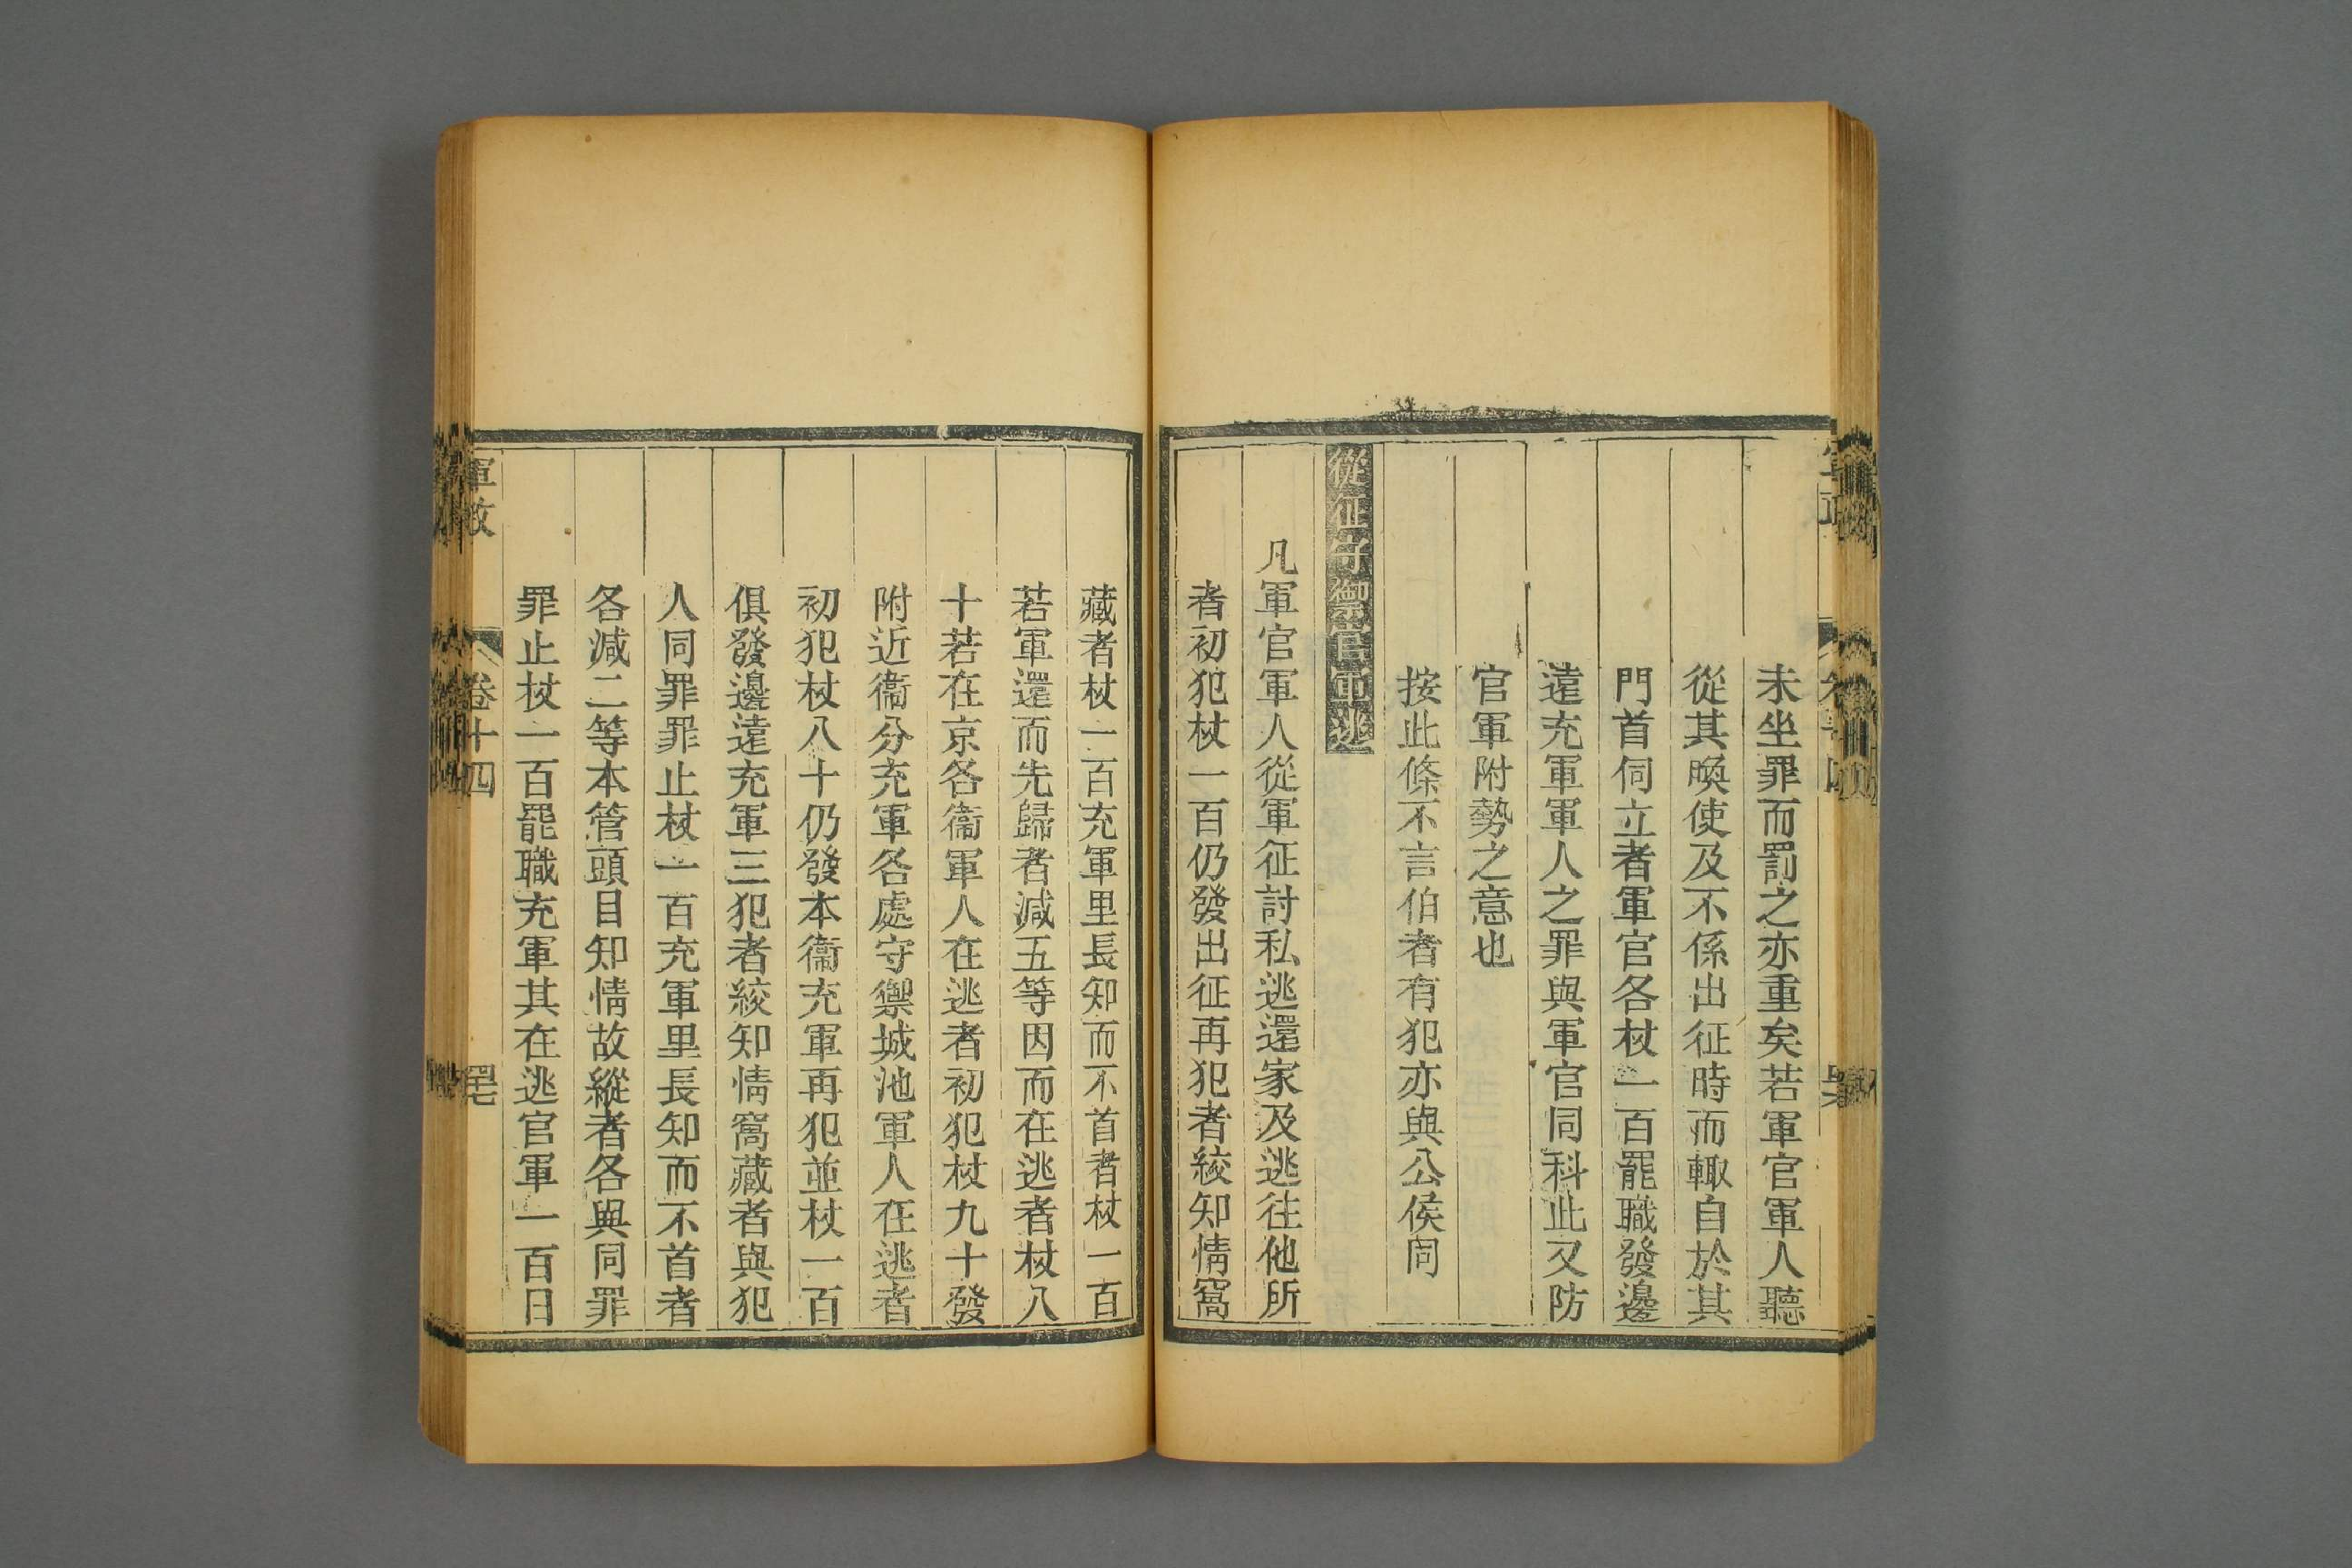 未坐罪而罰之亦重矣若軍官軍人聽
從其喚使及不係出征時而輙自於其
門首伺立者軍官各杖一百罷職發邊
遠充軍軍人之罪與軍官同科此又防
官軍附勢之意也
按此條不言伯者有犯亦與公侯同
從征守禦官軍逃
凡軍官軍人從軍征討私逃還家及逃往他所
者初犯杖一百仍發出征再犯者絞知情窩
藏者杖一百充軍里長知而不首者杖一百
若軍還而先歸者減五等因而在逃者杖八
十若在京各衞軍人在逃者初犯杖九十發
附近衞分充軍各處守禦城池軍人在逃者
初犯杖八十仍發本衞充軍再犯並杖一百
俱發邊遠充軍三犯者絞知情窩藏者與犯
人同罪罪止杖一百充軍里長知而不首者
各減二等本管頭目知情故縱者各與同罪
罪止杖一百罷職充軍其在逃官軍一百日
軍政
卷十四